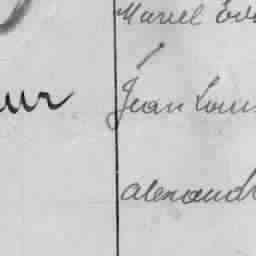 Marcel
ur
Jean Louis
alexandr